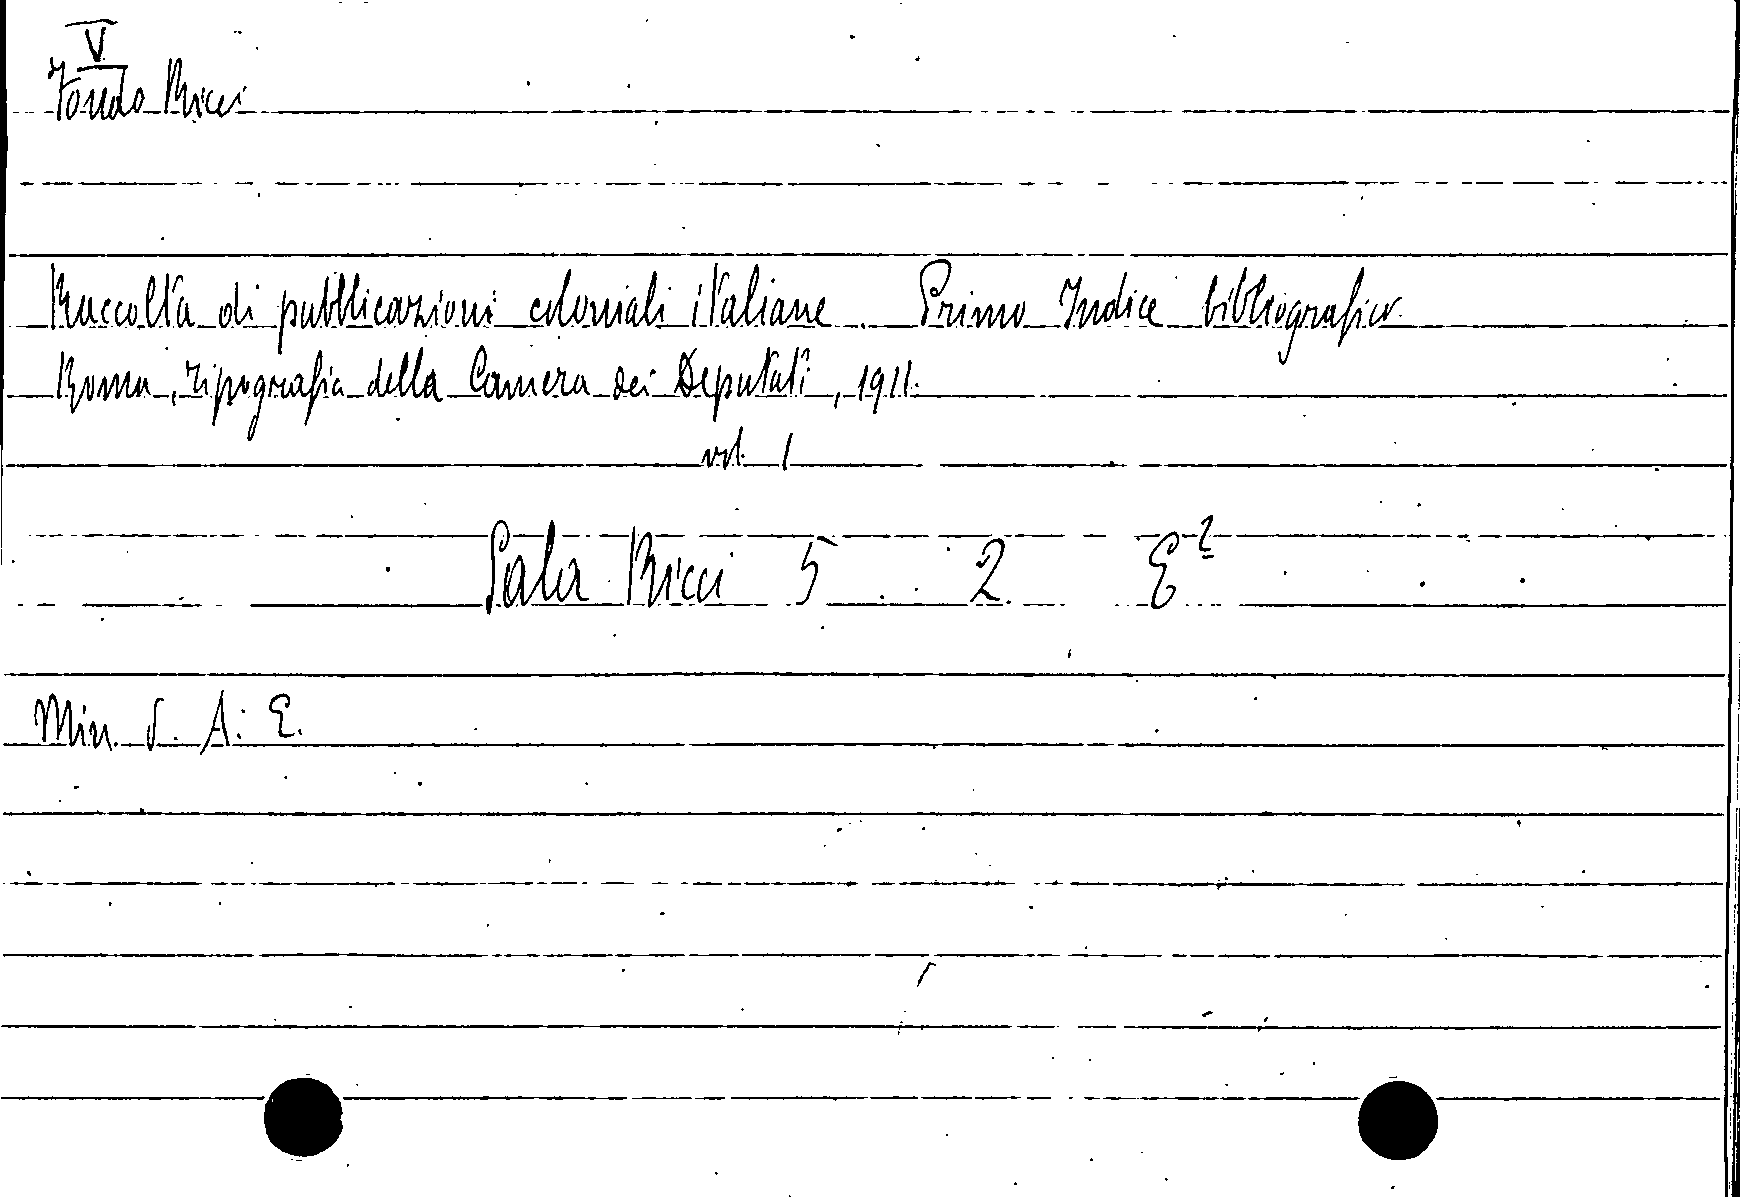 V
Fondo Ricci
Raccolta di pubblicazioni coloniali italiane. Primo Indice bibliografico.
Roma, Tipografia della Camera dei Deputati, 1911.
vol. 1
Sala Ricci 5 2 E²
Min. d. A. E.